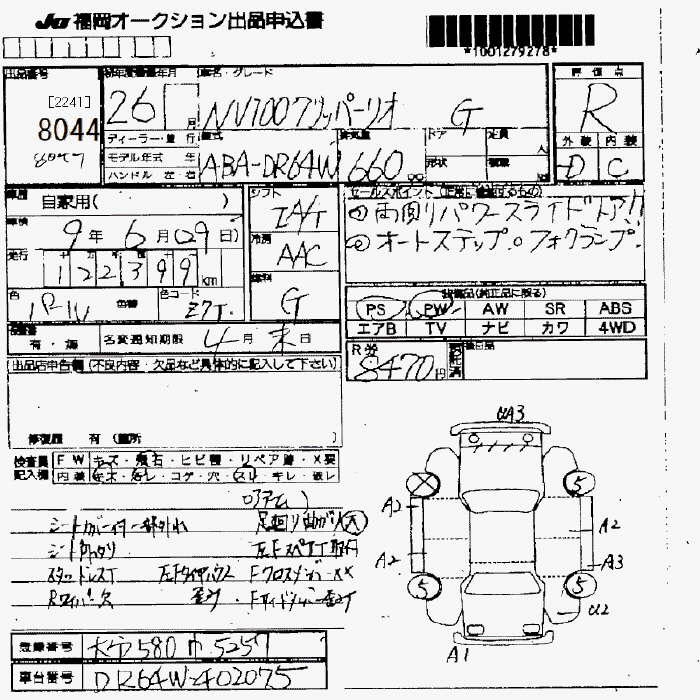 JU 福岡オークション出品申込書
*1001279278*
出品番号 初年度登録年月 車名・グレード 評価点
[2241]
8044
26 月 NV100クリッパーリオ G R
ディーラー・並行 型式 排気量 ドア 定員 外装 内装
モデル年式 年 ABA-DR64W 660 cc 形状 積載 D C
ハンドル 左・右
車歴 自家用( ) シフト IA/T セールスポイント(正常に機能するもの)
車検 9年6月(29日) 冷房 AAC ①両側パワースライドドア!!
走行 122399km ②オートステップ。フォグランプ.
色 色替 色コード Z7T. 燃料 G
装備品(純正品に限る)
PS PW AW SR ABS
エアB TV ナビ カワ 4WD
有・無 名変通知期限 4月末日 R券 8470円 預託済 後日品
出品店申告欄(不良内容・欠品など具体的に記入して下さい)
修復歴 有(箇所
検査員 FW キズ・飛石・ヒビ・リペア済・X要
記入欄 内装 キズ・汚レ・コゲ・穴・スレ・キレ・破レ
シートカバー一部外れ 足廻り曲がり大
左Fスペアタイヤ取付
スタッドレスT 左Fタイヤハウス FクロスメンバーXX
Rワイパー欠 歪み Fサイドメンバー歪み
αA3
5
A2 A2
A2 A3
5 5
α2
A1
登録番号 大分 580 5257
車台番号 DR64W-402075